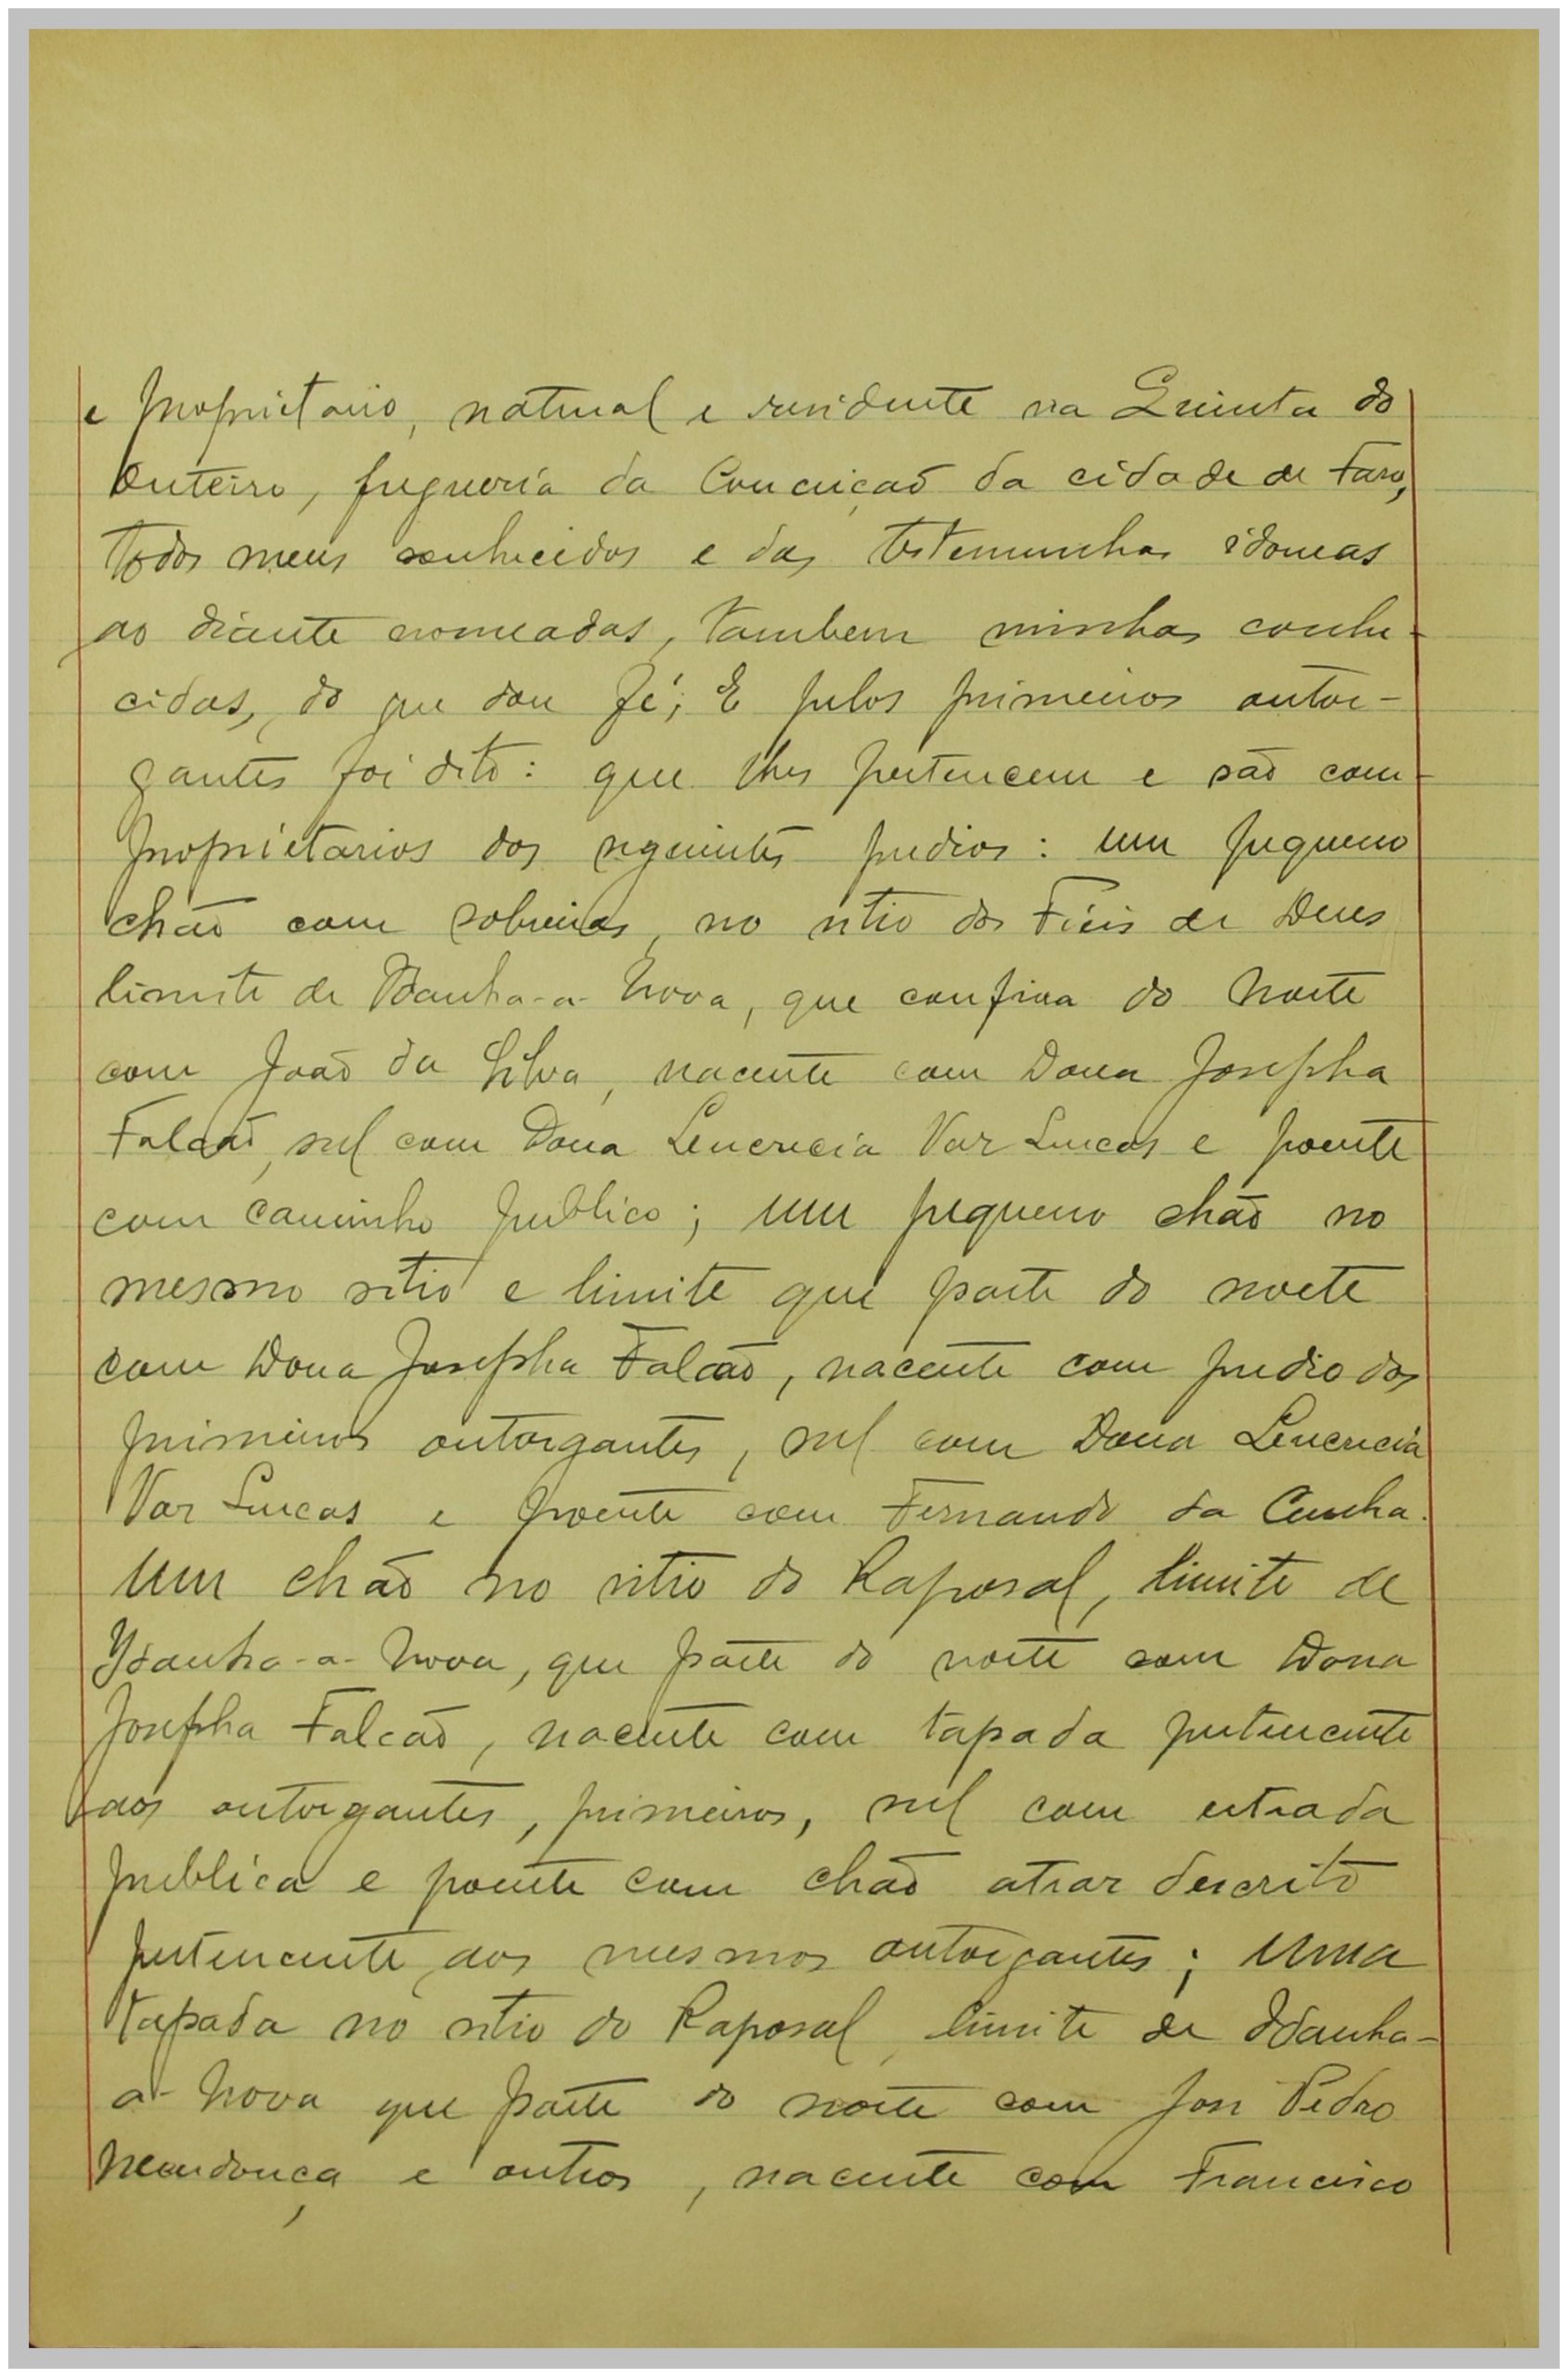 e proprietario, natural e residente na Quinta do
Outeiro, freguesia da Conceição da cidade de Faro,
todos meus conhecidos e das testemunhas idoneas
ao diante nomeadas, tambem minhas conhe-
cidas, do que dou fé; E pelos primeiros outor-
gantes foi dito: que lhes pertencem e são com-
proprietarios dos seguintes predios: um pequeno
chão com sobreiros, no sitio dos Fiéis de Deus
limite de Idanha-a-Nova, que confina do Norte
com João da Silva, nacente com Dona Josepha
Falcão, sul com Dona Leucrecia Vaz Lucas e poente
com caminho publico; um pequeno chão no
mesmo sitio e limite que parte do norte
com Dona Josepha Falcão, nacente com predio dos
primeiros outorgantes, sul com Dona Leucrecia
Vaz Lucas e poente com Fernando da Cunha.
Um chão no sitio do Raposal, limite de
Idanha-a-Nova, que parte do norte com Dona
Josepha Falcão, nacente com tapada pertencente
aos outorgantes, primeiros, sul com estrada
publica e poente com chão atraz descrito
pertencente aos mesmos outorgantes; Uma
tapada no sitio do Raposal, limite de Idanha-
a-Nova que parte do norte com José Pedro
Mendonça e outros, nacente com Francisco